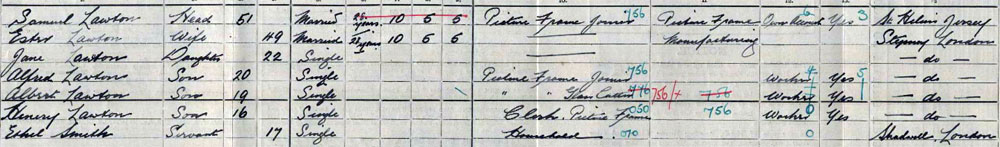 Samuel Lawton Head 51 Married 25 years 10 5 5 Picture Frame Joiner 756 Picture Frame Own Account 6 Yes 3 St Heliers Jersey
Ester Lawton Wife 49 Married years 10 5 5 Manufacturing Stepney London
Jane Lawton Daughter 22 Single — do —
Alfred Lawton Son 20 Single Picture Frame Joiner 756 Worker 4 Yes 5 — do —
Albert Lawton Son 19 Single " " Glass Cutter 756/4 756 Worker Yes — do —
Henery Lawton Son 16 Single Clerk Picture Frame 050 756 Worker 0 Yes — do —
Ethel Smith Servant 17 Single Household 070 0 Shadwell London